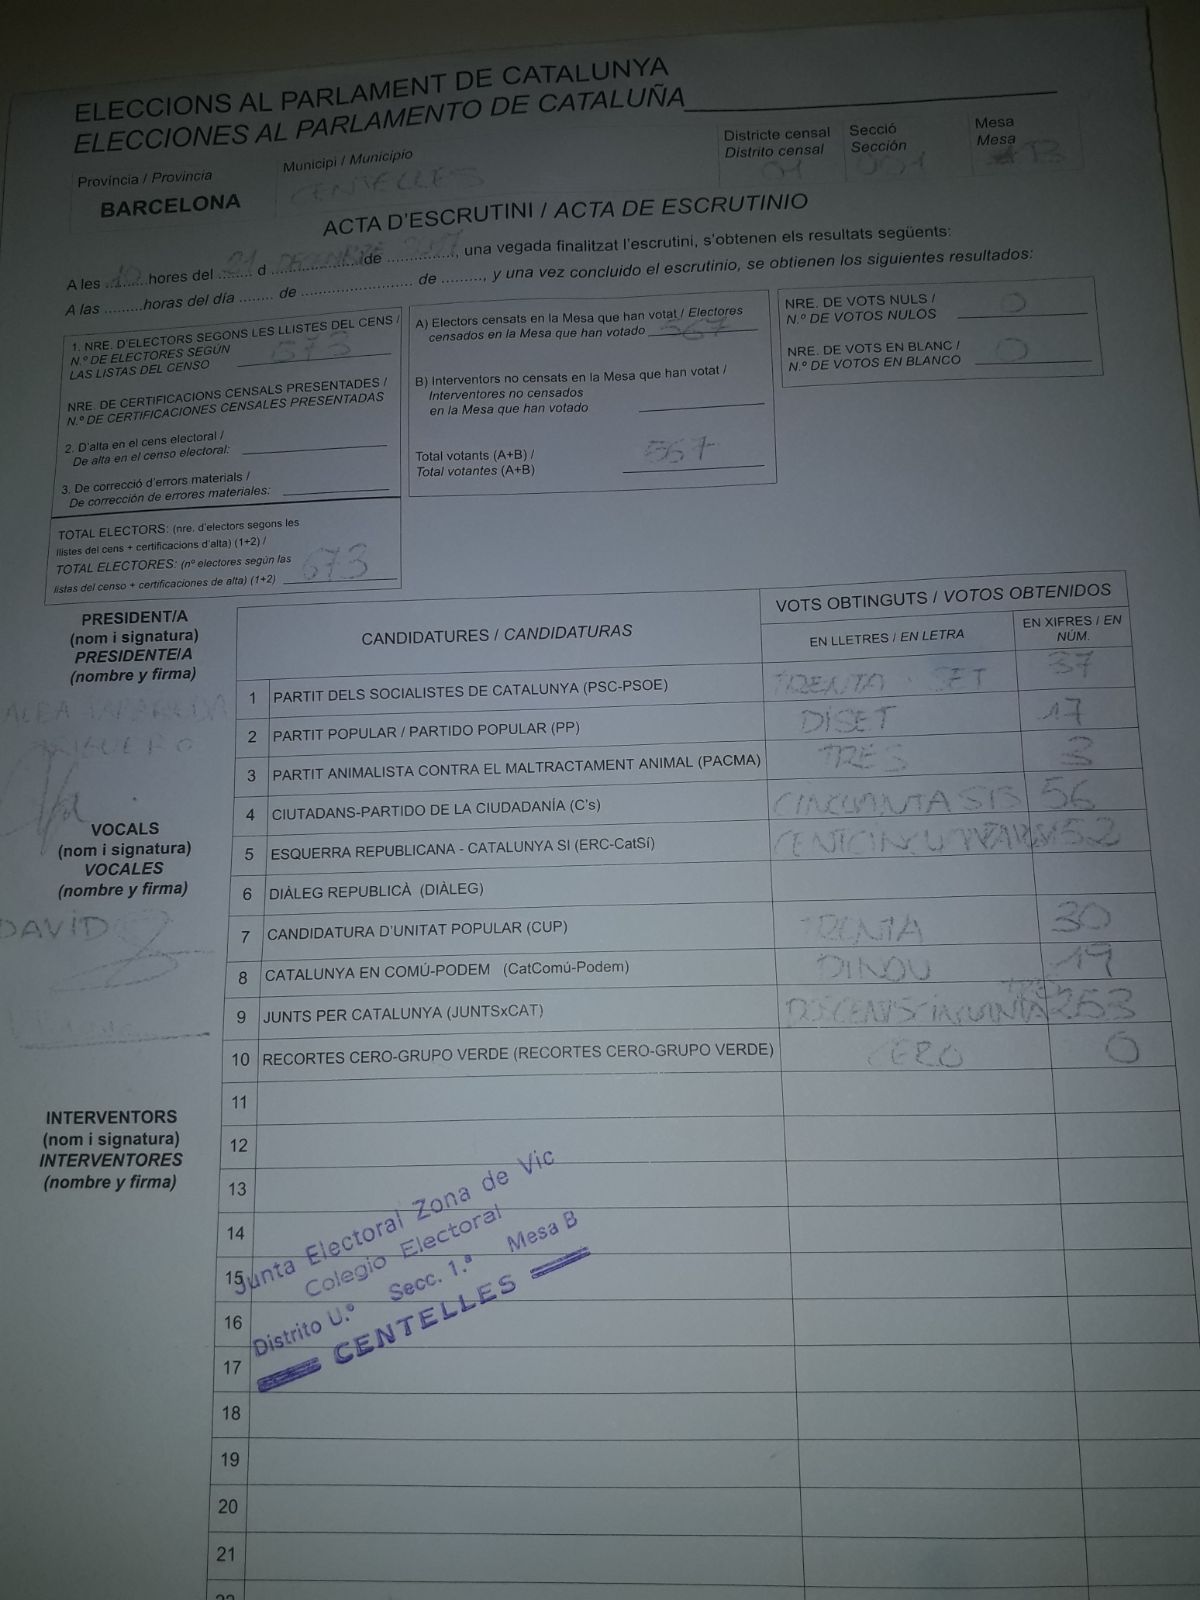 ELECCIONS AL PARLAMENT DE CATALUNYA
ELECCIONES AL PARLAMENTO DE CATALUÑA
Província / Provincia
BARCELONA
Municipi / Municipio
CENTELLES
Districte censal
Distrito censal
01
Secció
Sección
001
Mesa
Mesa
B
ACTA D'ESCRUTINI / ACTA DE ESCRUTINIO
A les ........ hores del 21 d DECEMBRE de 2017, una vegada finalitzat l'escrutini, s'obtenen els resultats següents:
A las .........horas del día ........ de ........................ de ........., y una vez concluido el escrutinio, se obtienen los siguientes resultados:
1. NRE. D'ELECTORS SEGONS LES LLISTES DEL CENS /
N.º DE ELECTORES SEGÚN
LAS LISTAS DEL CENSO
673
NRE. DE CERTIFICACIONS CENSALS PRESENTADES /
N.º DE CERTIFICACIONES CENSALES PRESENTADAS
2. D'alta en el cens electoral /
De alta en el censo electoral:
3. De correcció d'errors materials /
De corrección de errores materiales:
TOTAL ELECTORS: (nre. d'electors segons les
llistes del cens + certificacions d'alta) (1+2) /
TOTAL ELECTORES: (nº electores según las
listas del censo + certificaciones de alta) (1+2) 673
A) Electors censats en la Mesa que han votat / Electores
censados en la Mesa que han votado 567
B) Interventors no censats en la Mesa que han votat /
Interventores no censados
en la Mesa que han votado
Total votants (A+B) /
Total votantes (A+B)
567
NRE. DE VOTS NULS /
N.º DE VOTOS NULOS
0
NRE. DE VOTS EN BLANC /
N.º DE VOTOS EN BLANCO
0
PRESIDENT/A
(nom i signatura)
PRESIDENTE/A
(nombre y firma)
VOCALS
(nom i signatura)
VOCALES
(nombre y firma)
DAVID
INTERVENTORS
(nom i signatura)
INTERVENTORES
(nombre y firma)
CANDIDATURES / CANDIDATURAS
VOTS OBTINGUTS / VOTOS OBTENIDOS
EN LLETRES / EN LETRA
EN XIFRES / EN
NÚM.
1 PARTIT DELS SOCIALISTES DE CATALUNYA (PSC-PSOE) TRENTA SET 37
2 PARTIT POPULAR / PARTIDO POPULAR (PP) DISET 17
3 PARTIT ANIMALISTA CONTRA EL MALTRACTAMENT ANIMAL (PACMA) TRES 3
4 CIUTADANS-PARTIDO DE LA CIUDADANÍA (C's) CINCUANTA SIS 56
5 ESQUERRA REPUBLICANA - CATALUNYA SI (ERC-CatSí) 152
6 DIÀLEG REPUBLICÀ (DIÀLEG)
7 CANDIDATURA D'UNITAT POPULAR (CUP) TRENTA 30
8 CATALUNYA EN COMÚ-PODEM (CatComú-Podem) DINOU 19
9 JUNTS PER CATALUNYA (JUNTSxCAT) DOSCENTS CINCUANTA TRES 253
10 RECORTES CERO-GRUPO VERDE (RECORTES CERO-GRUPO VERDE) CERO 0
11
12
13
14
15
16
17
18
19
20
21
Junta Electoral Zona de Vic
Colegio Electoral
Distrito U.º Secc. 1.ª Mesa B
CENTELLES